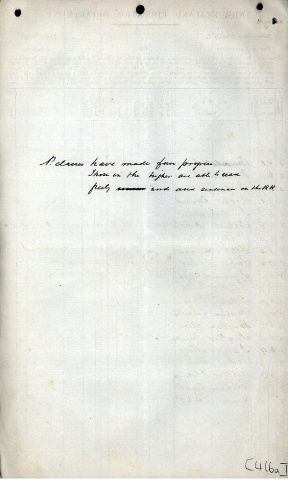 N. classes have made fair progress.
Those in the higher are able to read
freely and and sentences on the BB.
[416a]